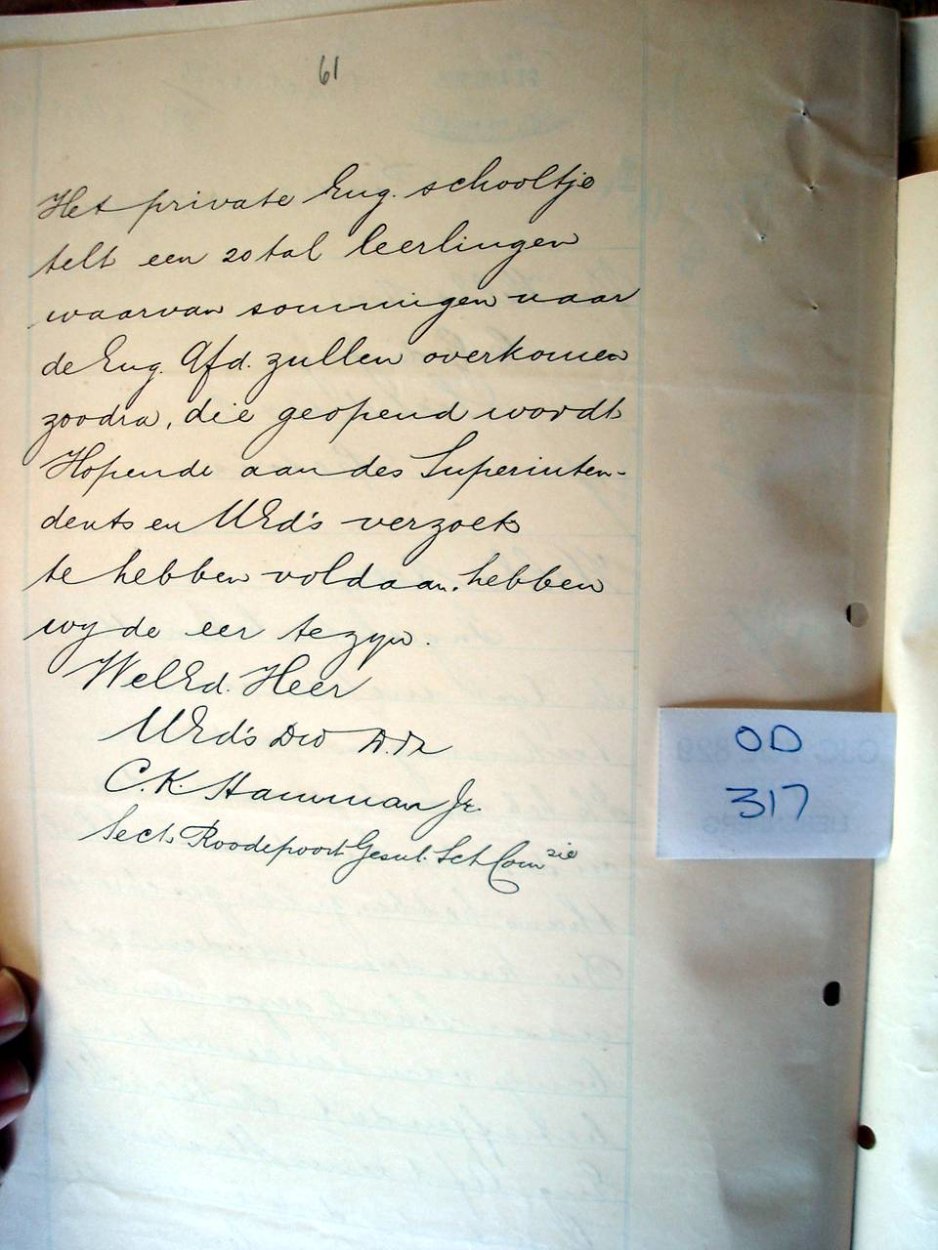 61
Het private Eng. schooltje
telt een 20 tal leerlingen
waarvan sommigen naar
de Eng. Afd. zullen overkomen
zoodra, die geopend wordt
Hopende aan des Superinten-
dents en UEd's verzoek
te hebben voldaan. hebben
wy de eer te zyn.
WelEd. Heer
UEd's Dw D.Dr
C.K. Hamman Jr.
Sects Roodepoort Gesub. Sch Com zie
OD
317